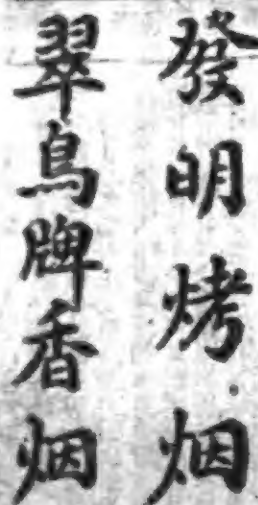 發明烤烟
翠鳥牌香烟